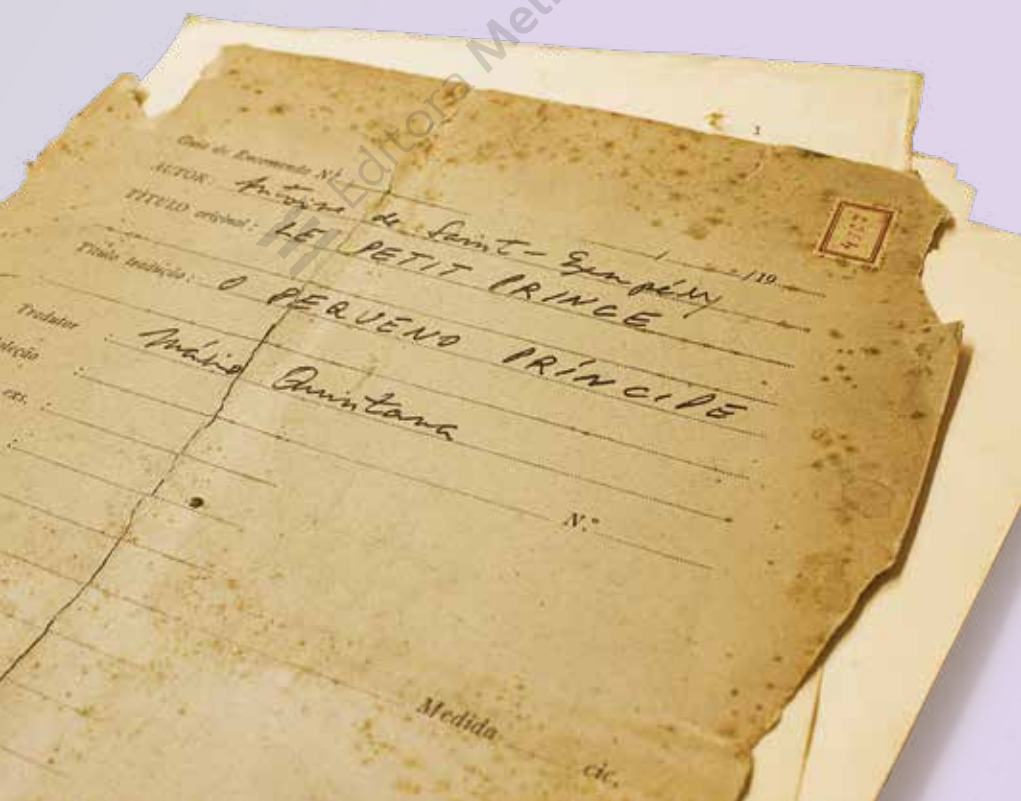 Editora
1
Guia de Encomenda Nº
/ /19
AUTOR: Antoine de Saint-Exempéry
TÍTULO original: LE PETIT PRINCE
Título tradução: O PEQUENO PRÍNCIPE
Tradutor : Mário Quintana
:
ext. :
:
N.º
Medida
cic.